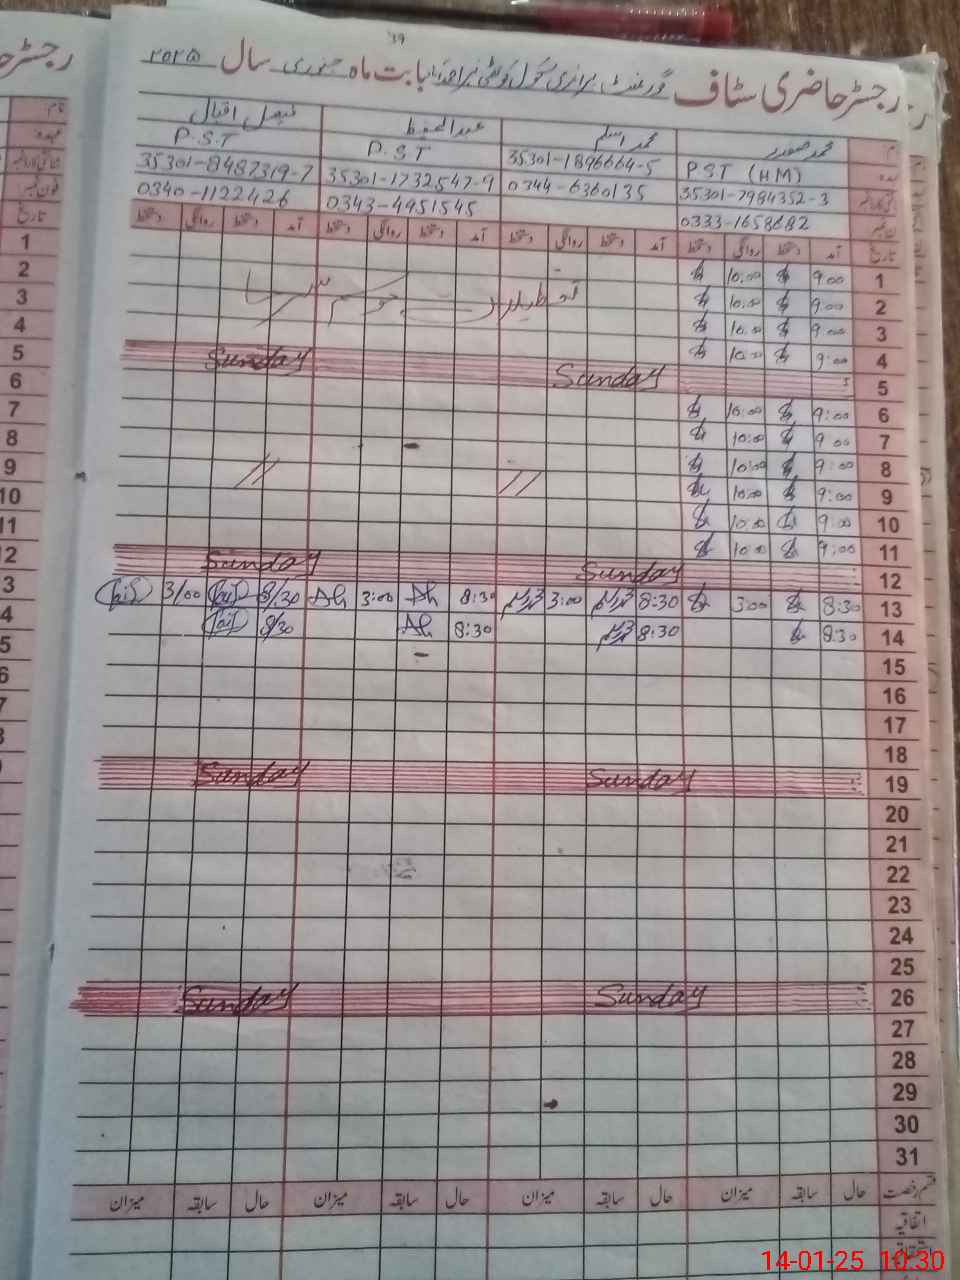 39
رجسٹر حاضری سٹاف گورنمنٹ پرائمری سکول بابت ماہ جنوری سال ۲۰۲۵
محمد صفدر محمد اسلم عبدالحفیظ فیصل اقبال
PST (HM) P.ST P.S.T
35301-7984352-3 35301-1896664-5 35301-1732547-9 35301-8487319-7
0333-1658682 0344-6360135 0343-4951545 0340-1122426
تاریخ آمد دستخط روانگی دستخط آمد دستخط روانگی دستخط آمد دستخط روانگی دستخط آمد دستخط روانگی دستخط تاریخ
1 9:00 10:00
2 9:00 10:00
3 9:00 10:00
4 9:00 10:00
تعطیلات موسم سرما
5 Sunday Sunday
6 9:00 10:00
7 9:00 10:00
8 9:00 10:00
9 9:00 10:00
10 9:00 10:00
11 9:00 10:00
12 Sunday Sunday
13 8:30 3:00 8:30 3:00 8:30 3:00 8/30 3/00
14 8:30 8:30 8:30 8/30
15
16
17
18
19 Sunday Sunday
20
21
22
23
24
25
26 Sunday Sunday
27
28
29
30
31
قسم رخصت حال سابقہ میزان حال سابقہ میزان حال سابقہ میزان حال سابقہ میزان
اتفاقیہ
14-01-25 10:30